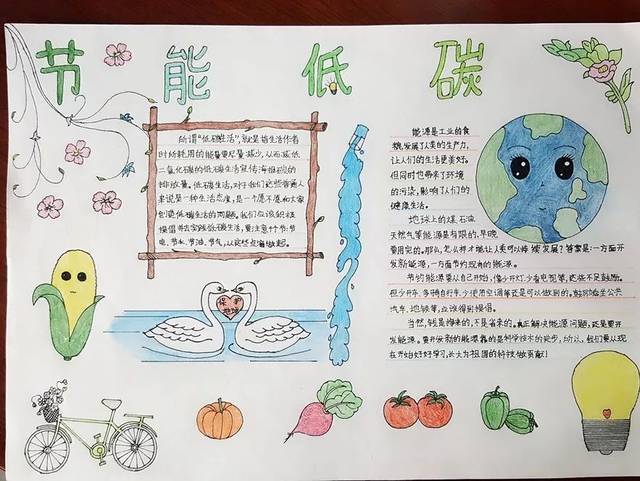 节能低碳
所谓“低碳生活”,就是指生活作者
时所耗用的能量要尽量减少,从而减低
二氧化碳的低碳生活宣传海报碳的
排放量。低碳生活,对于我们这些普通人
来说是一种生活态度,是一个愿不愿和大家
创造低碳生活的问题。我们应该积极
提倡并去实践低碳生活,要注意个节:节
电、节水、节油、节气,从这些点滴做起。
保
能源是工业的食
粮,发展了人类的生产力,
让人们的生活更美好。
但同时也带来了环境
的污染,影响了人们的
健康生活。
地球上的煤、石油、
天然气等能源是有限的,早晚
要用完的。那么,怎么样才能让人类可以持续发展?答案是:一方面开
发新能源,一方面节约现有的能源。
节约能源要从自己开始,像少开灯,少看电视等,这些不足鼓励。
但少开车,多骑自行车,少使用空调等还是可以做到的。鼓励坐公共
汽车,地铁等,应该得到提倡。
当然,钱是挣来的,不是省来的。真正解决能源问题,还是要开
发能源。要开发新的能源,靠的是科学技术的进步,所以,我们要从现
在开始好好学习,长大为祖国的科技做贡献!